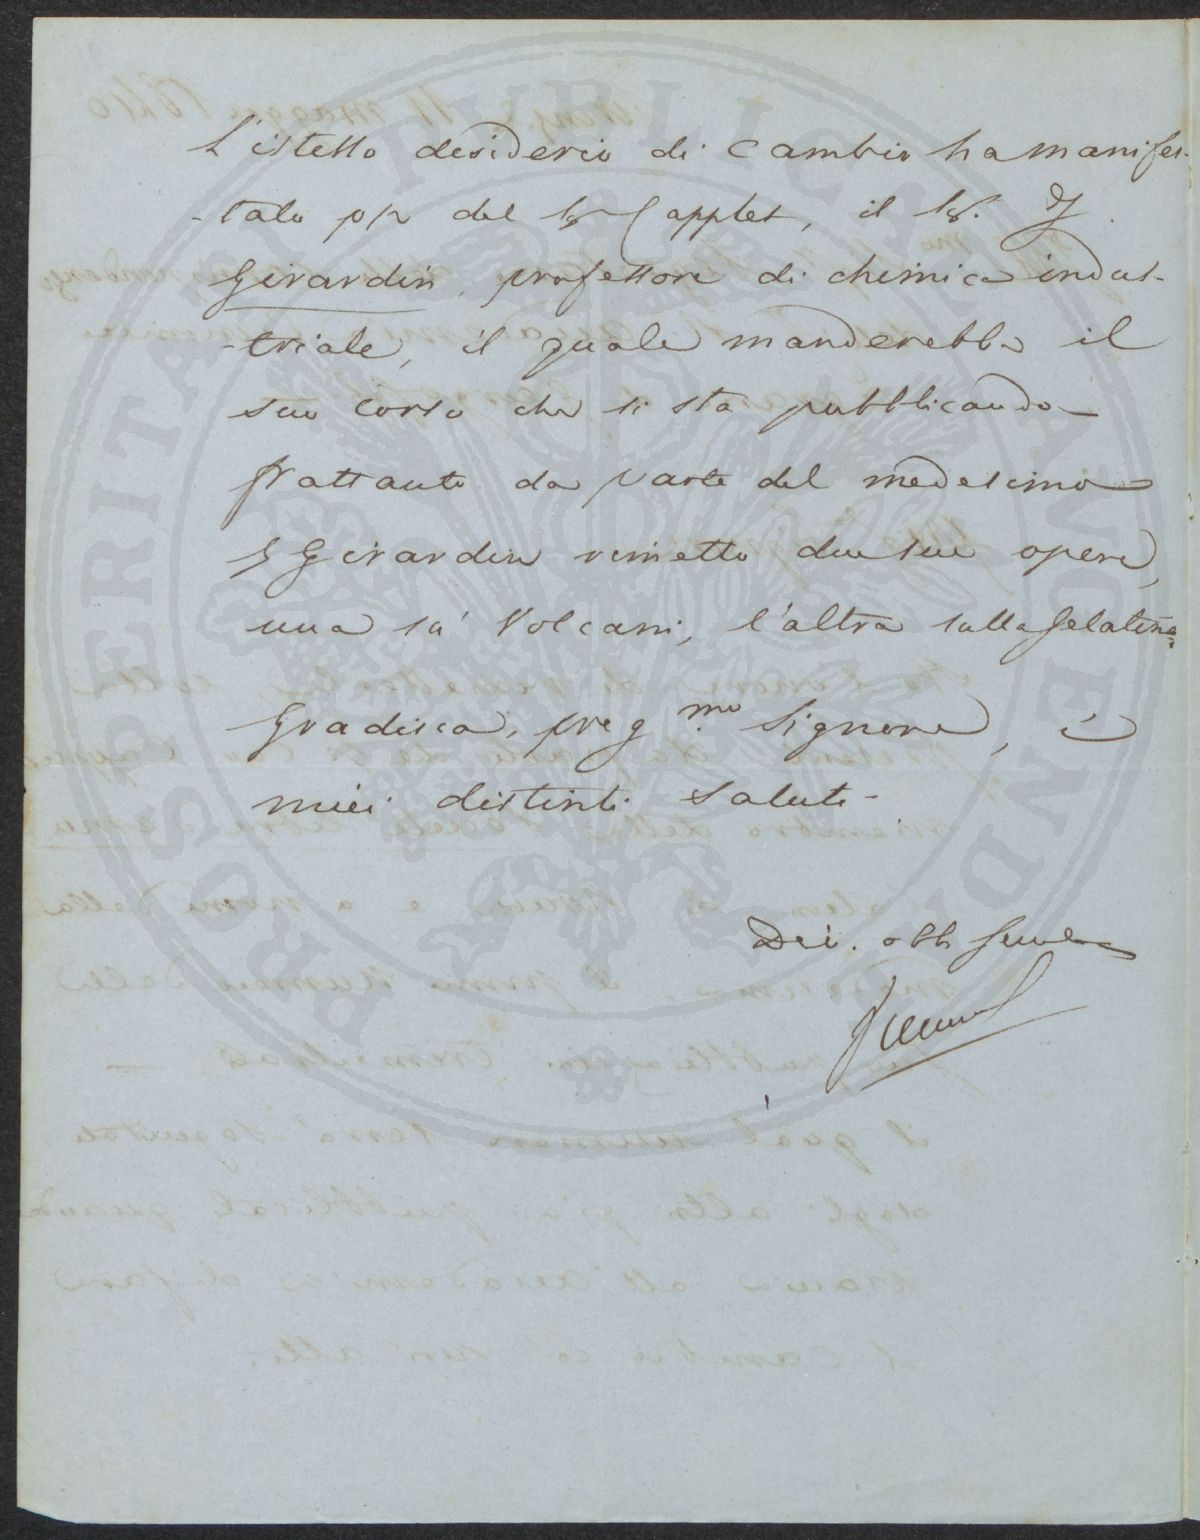 L'istesso desiderio di cambio ha manifes-
-tato pr del Sr Capplet, il Sr. J.
Girardin, professore di chimica indus-
-triale, il quale manderebbe il
suo corso che si sta pubblicando
frattanto da parte del medesimo
S Girardin rimetto due sue opere,
una su' Volcani, l'altra sulla gelatina.
Gradisca, preg.mo Signore, i
miei distinti saluti-
Dev. obb
PROSPERITATI PUBLICAE AVGENDAE